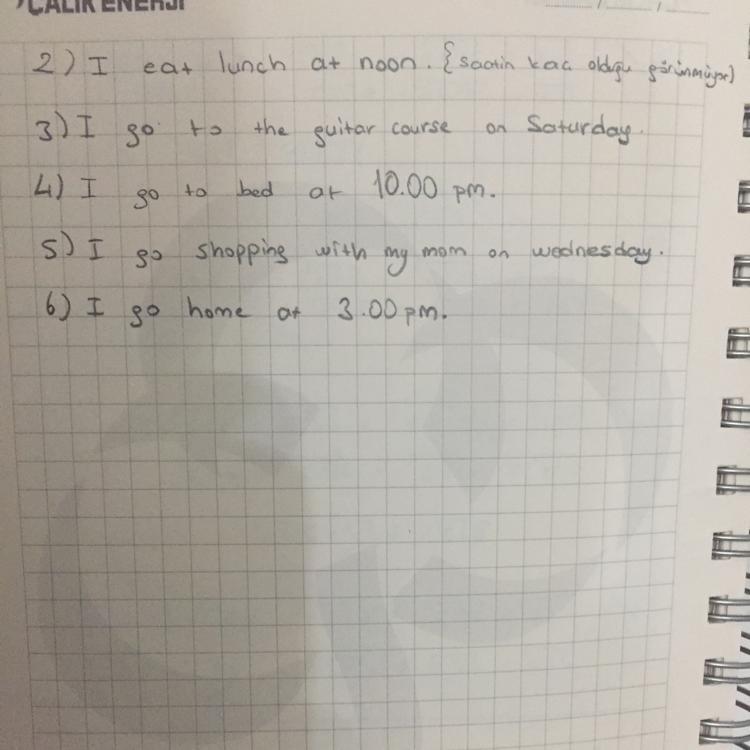 ÇALIK ENERJİ
/ /
2) I eat lunch at noon. {saatin kac olduğu görünmüyor)
3) I go to the guitar course on Saturday.
4) I go to bed at 10.00 pm.
5) I go shopping with my mom on wednesday.
6) I go home at 3.00 pm.